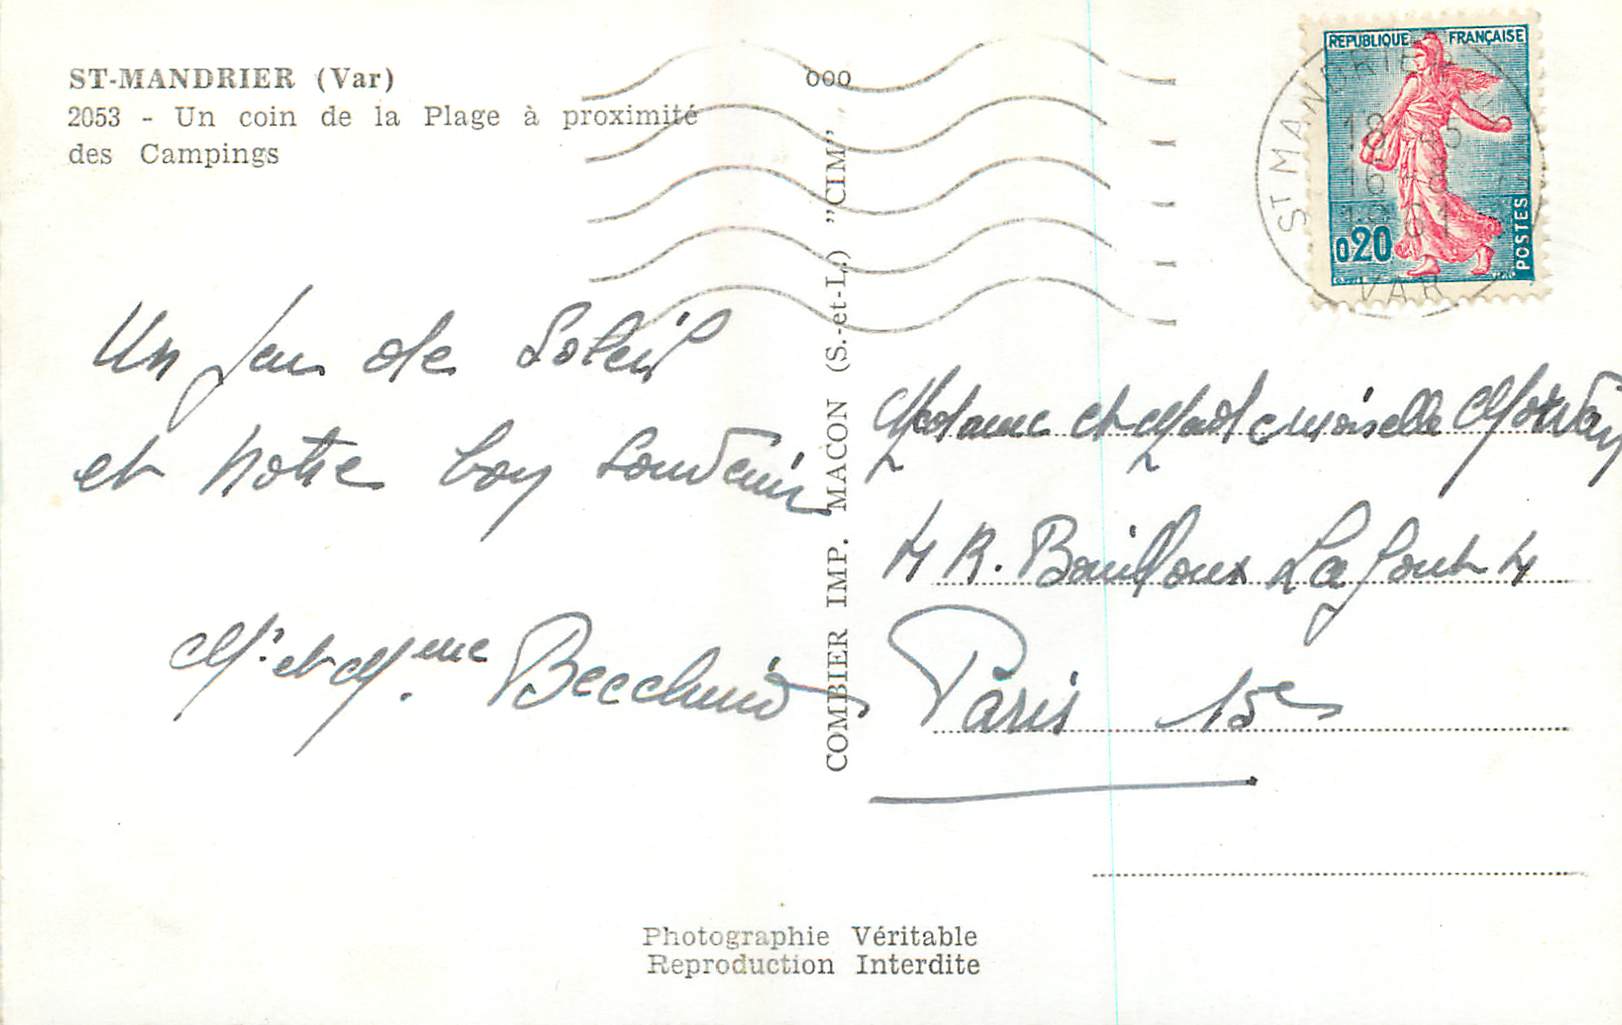 ST-MANDRIER (Var)
2053 - Un coin de la Plage à proximité
des Campings
Un peu de Soleil
et notre bon souvenir
Mr et Mme
COMBIER IMP. MACON (S.-et-L.) "CIM"
000
REPUBLIQUE FRANÇAISE
0,20
POSTES
ST MANDRIER
18 45
16 -8
1961
VAR
Madame et Mademoiselle
4 R. Bouilloux Lafont 4
Paris 15e
Photographie Véritable
Reproduction Interdite